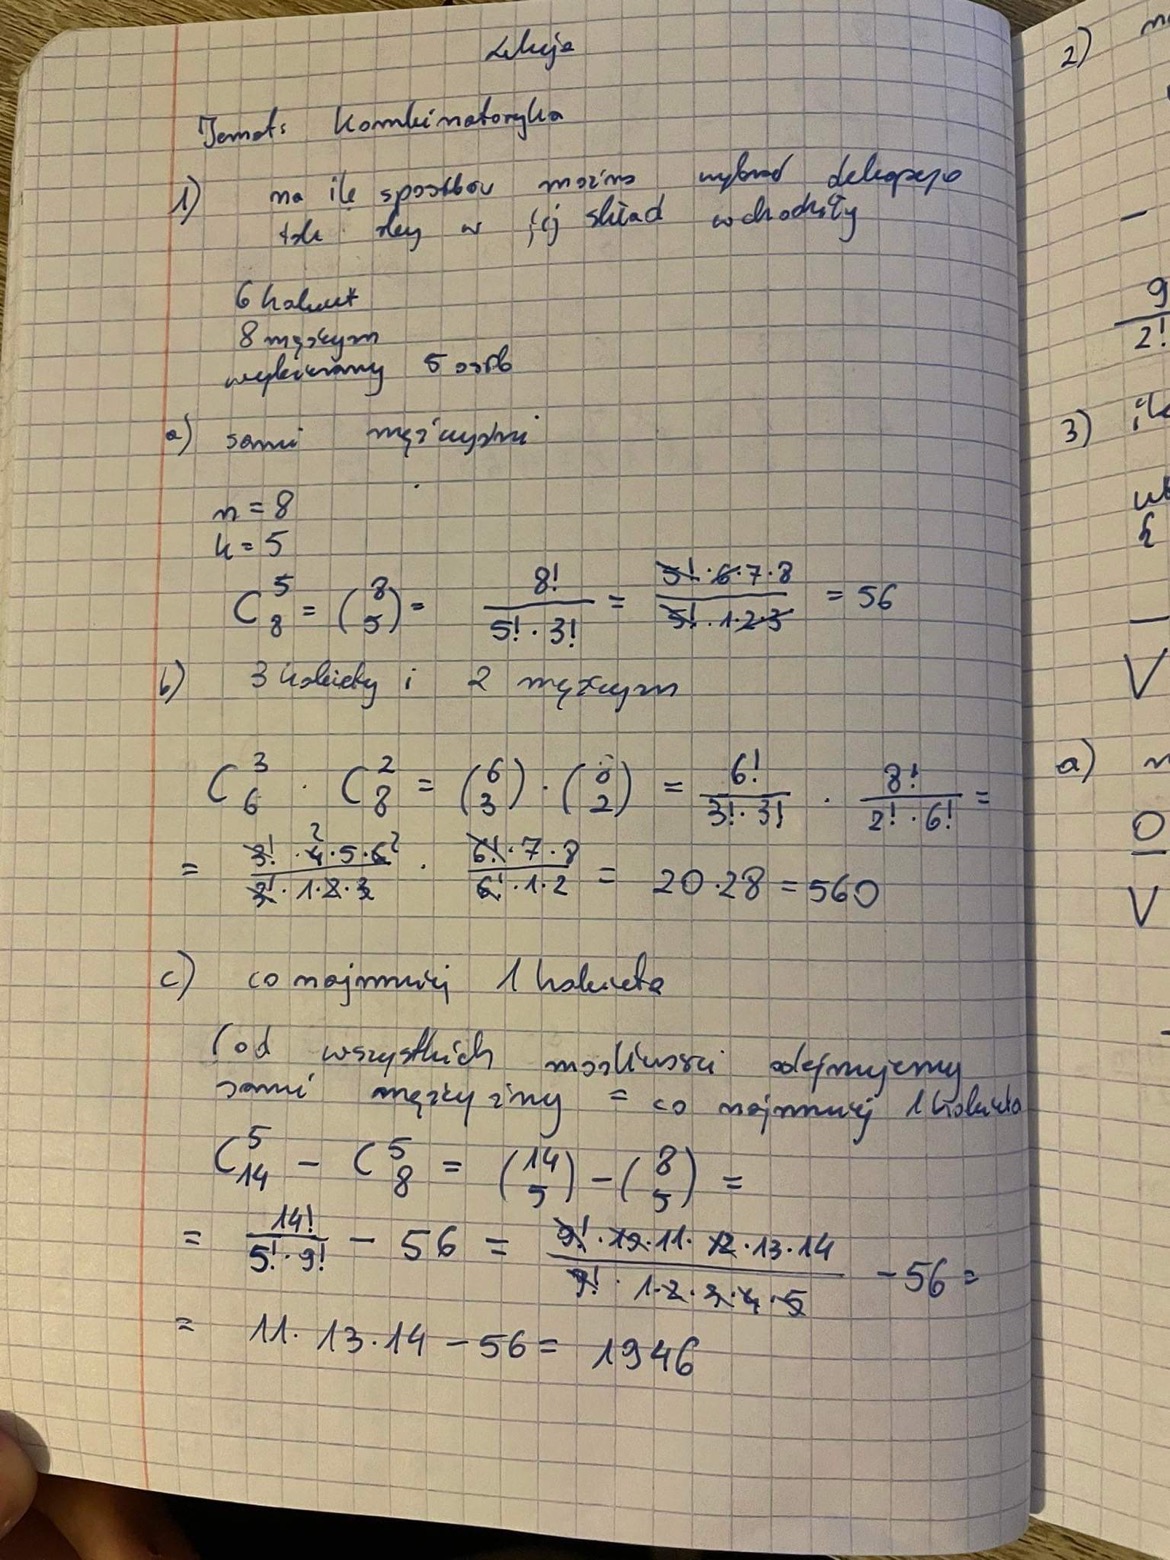 Lekcja
Temat: Kombinatoryka
1) na ile sposobów można wybrać delegację
tak aby w jej skład wchodziły
6 kobiet
8 mężczyzn
wybieramy 5 osób
a) sami mężczyźni
n = 8
k = 5
C_8^5 = (8 5) = 8!/(5! · 3!) = (5! · 6 · 7 · 8)/(5! · 1 · 2 · 3) = 56
b) 3 kobiety i 2 mężczyzn
C_6^3 · C_8^2 = (6 3) · (8 2) = 6!/(3! · 3!) · 8!/(2! · 6!) =
= (3! · 4 · 5 · 6)/(3! · 1 · 2 · 3) · (6! · 7 · 8)/(6! · 1 · 2) = 20 · 28 = 560
c) co najmniej 1 kobieta
(od wszystkich możliwości odejmujemy
sami mężczyźni = co najmniej 1 kobieta
C_14^5 - C_8^5 = (14 5) - (8 5) =
= 14!/(5! · 9!) - 56 = (9! · 10 · 11 · 12 · 13 · 14)/(9! · 1 · 2 · 3 · 4 · 5) - 56 =
= 11 · 13 · 14 - 56 = 1946
2)
9
2!
3)
V
a)
0
V